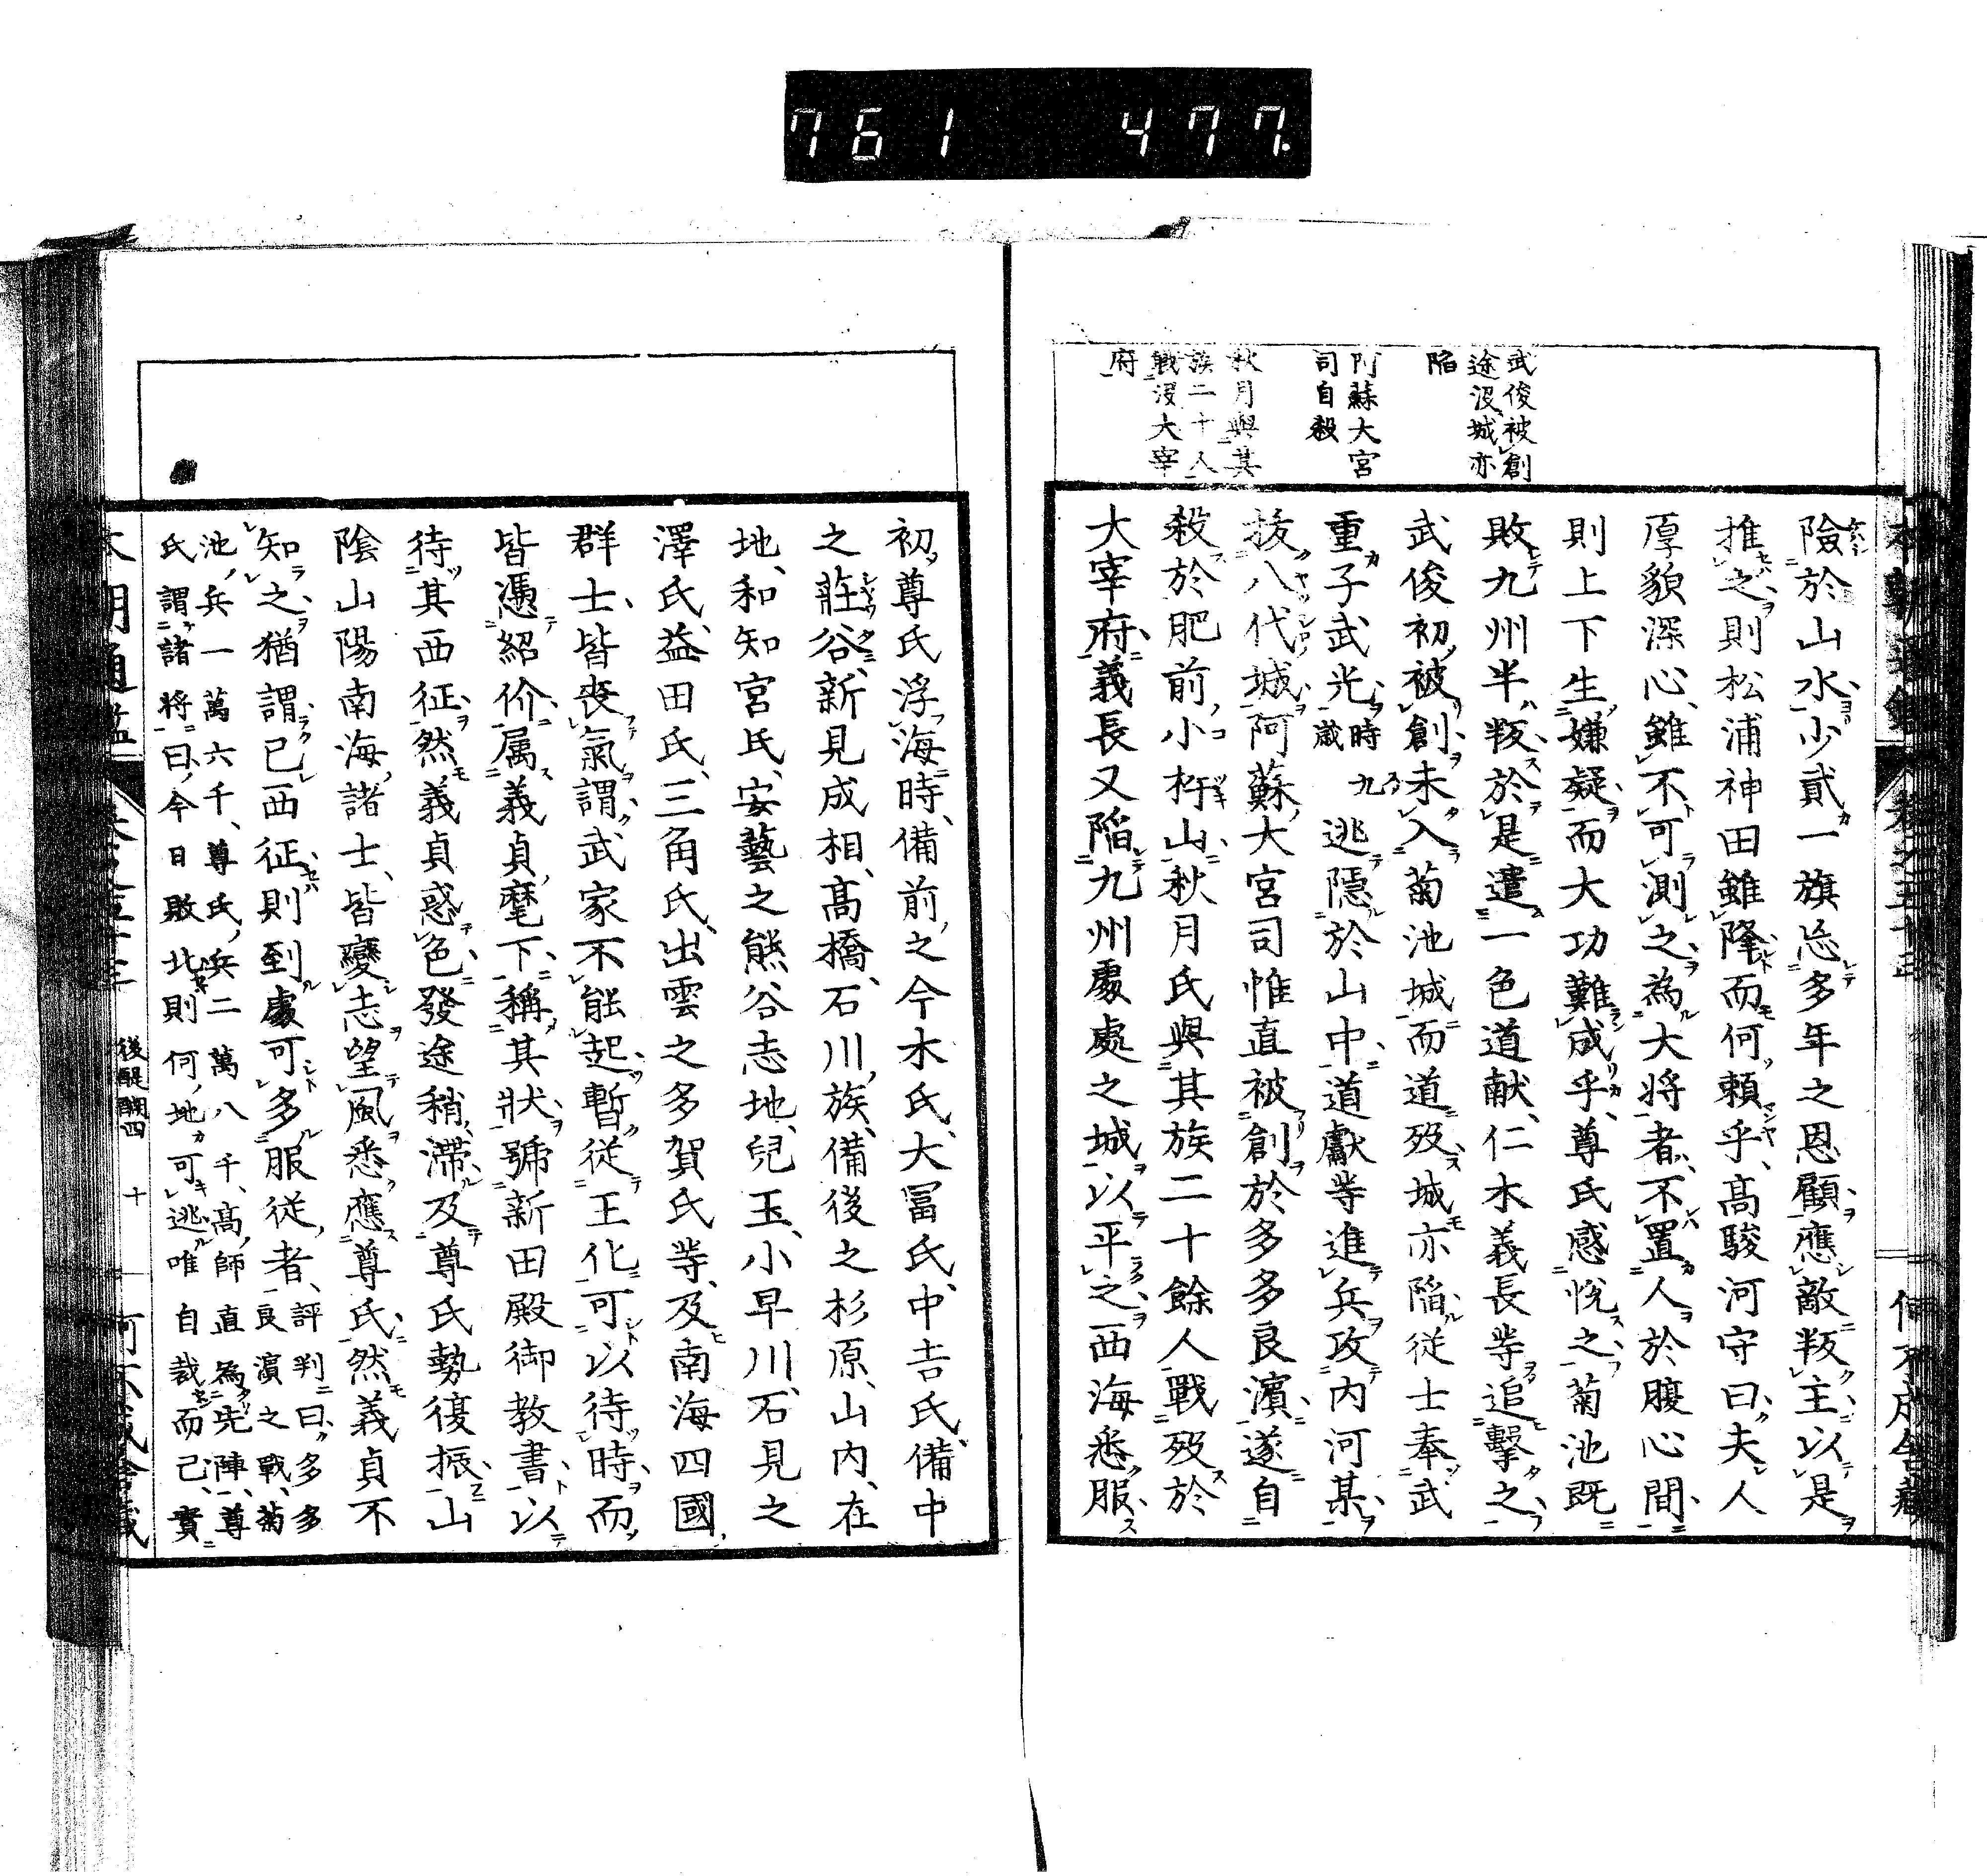 761 477.
武俊被創
途沒城亦
陥
阿蘇大宮
司自殺
秋月與其
族二十人
戰沒大宰
府
險於山水少貳一旗忘多年之恩顧應敵叛主以是
推之則松浦神田雖降而何賴乎高駿河守曰夫人
厚貌深心雖不可測之為大将者不置人於腹心間
則上下生嫌疑而大功難成乎尊氏感悅之菊池既
敗九州半叛於是遣一色道献仁木義長等追擊之
武俊初被創未入菊池城而道歿城亦陥従士奉武
重子武光時九歳逃隱於山中道獻等進兵攻内河某
抜八代城阿蘇大宮司惟直被創於多多良濱遂自
殺於肥前小杵山秋月氏與其族二十餘人戰歿於
大宰府義長又陥九州處處之城以平之西海悉服
初尊氏浮海時備前之今木氏大冨氏中吉氏備中
之莊谷新見成相髙橋石川族備後之杉原山内在
地和知宮氏安藝之熊谷志地兒玉小早川石見之
澤氏益田氏三角氏出雲之多賀氏等及南海四國
群士皆丧氣謂武家不能起暫従王化可以待時而
皆憑紹价属義貞麾下稱其狀號新田殿御教書以
待其西征然義貞惑色發途稍滯及尊氏勢復振山
陰山陽南海諸士皆變志望風悉應尊氏然義貞不
知之猶謂已西征則到處可多服従者評判曰多多
良濱之戰菊
池兵一萬六千尊氏兵二萬八千髙師直為先陣尊
氏謂諸将曰今日敗北則何地可逃唯自裁而已實
後醍醐四 十